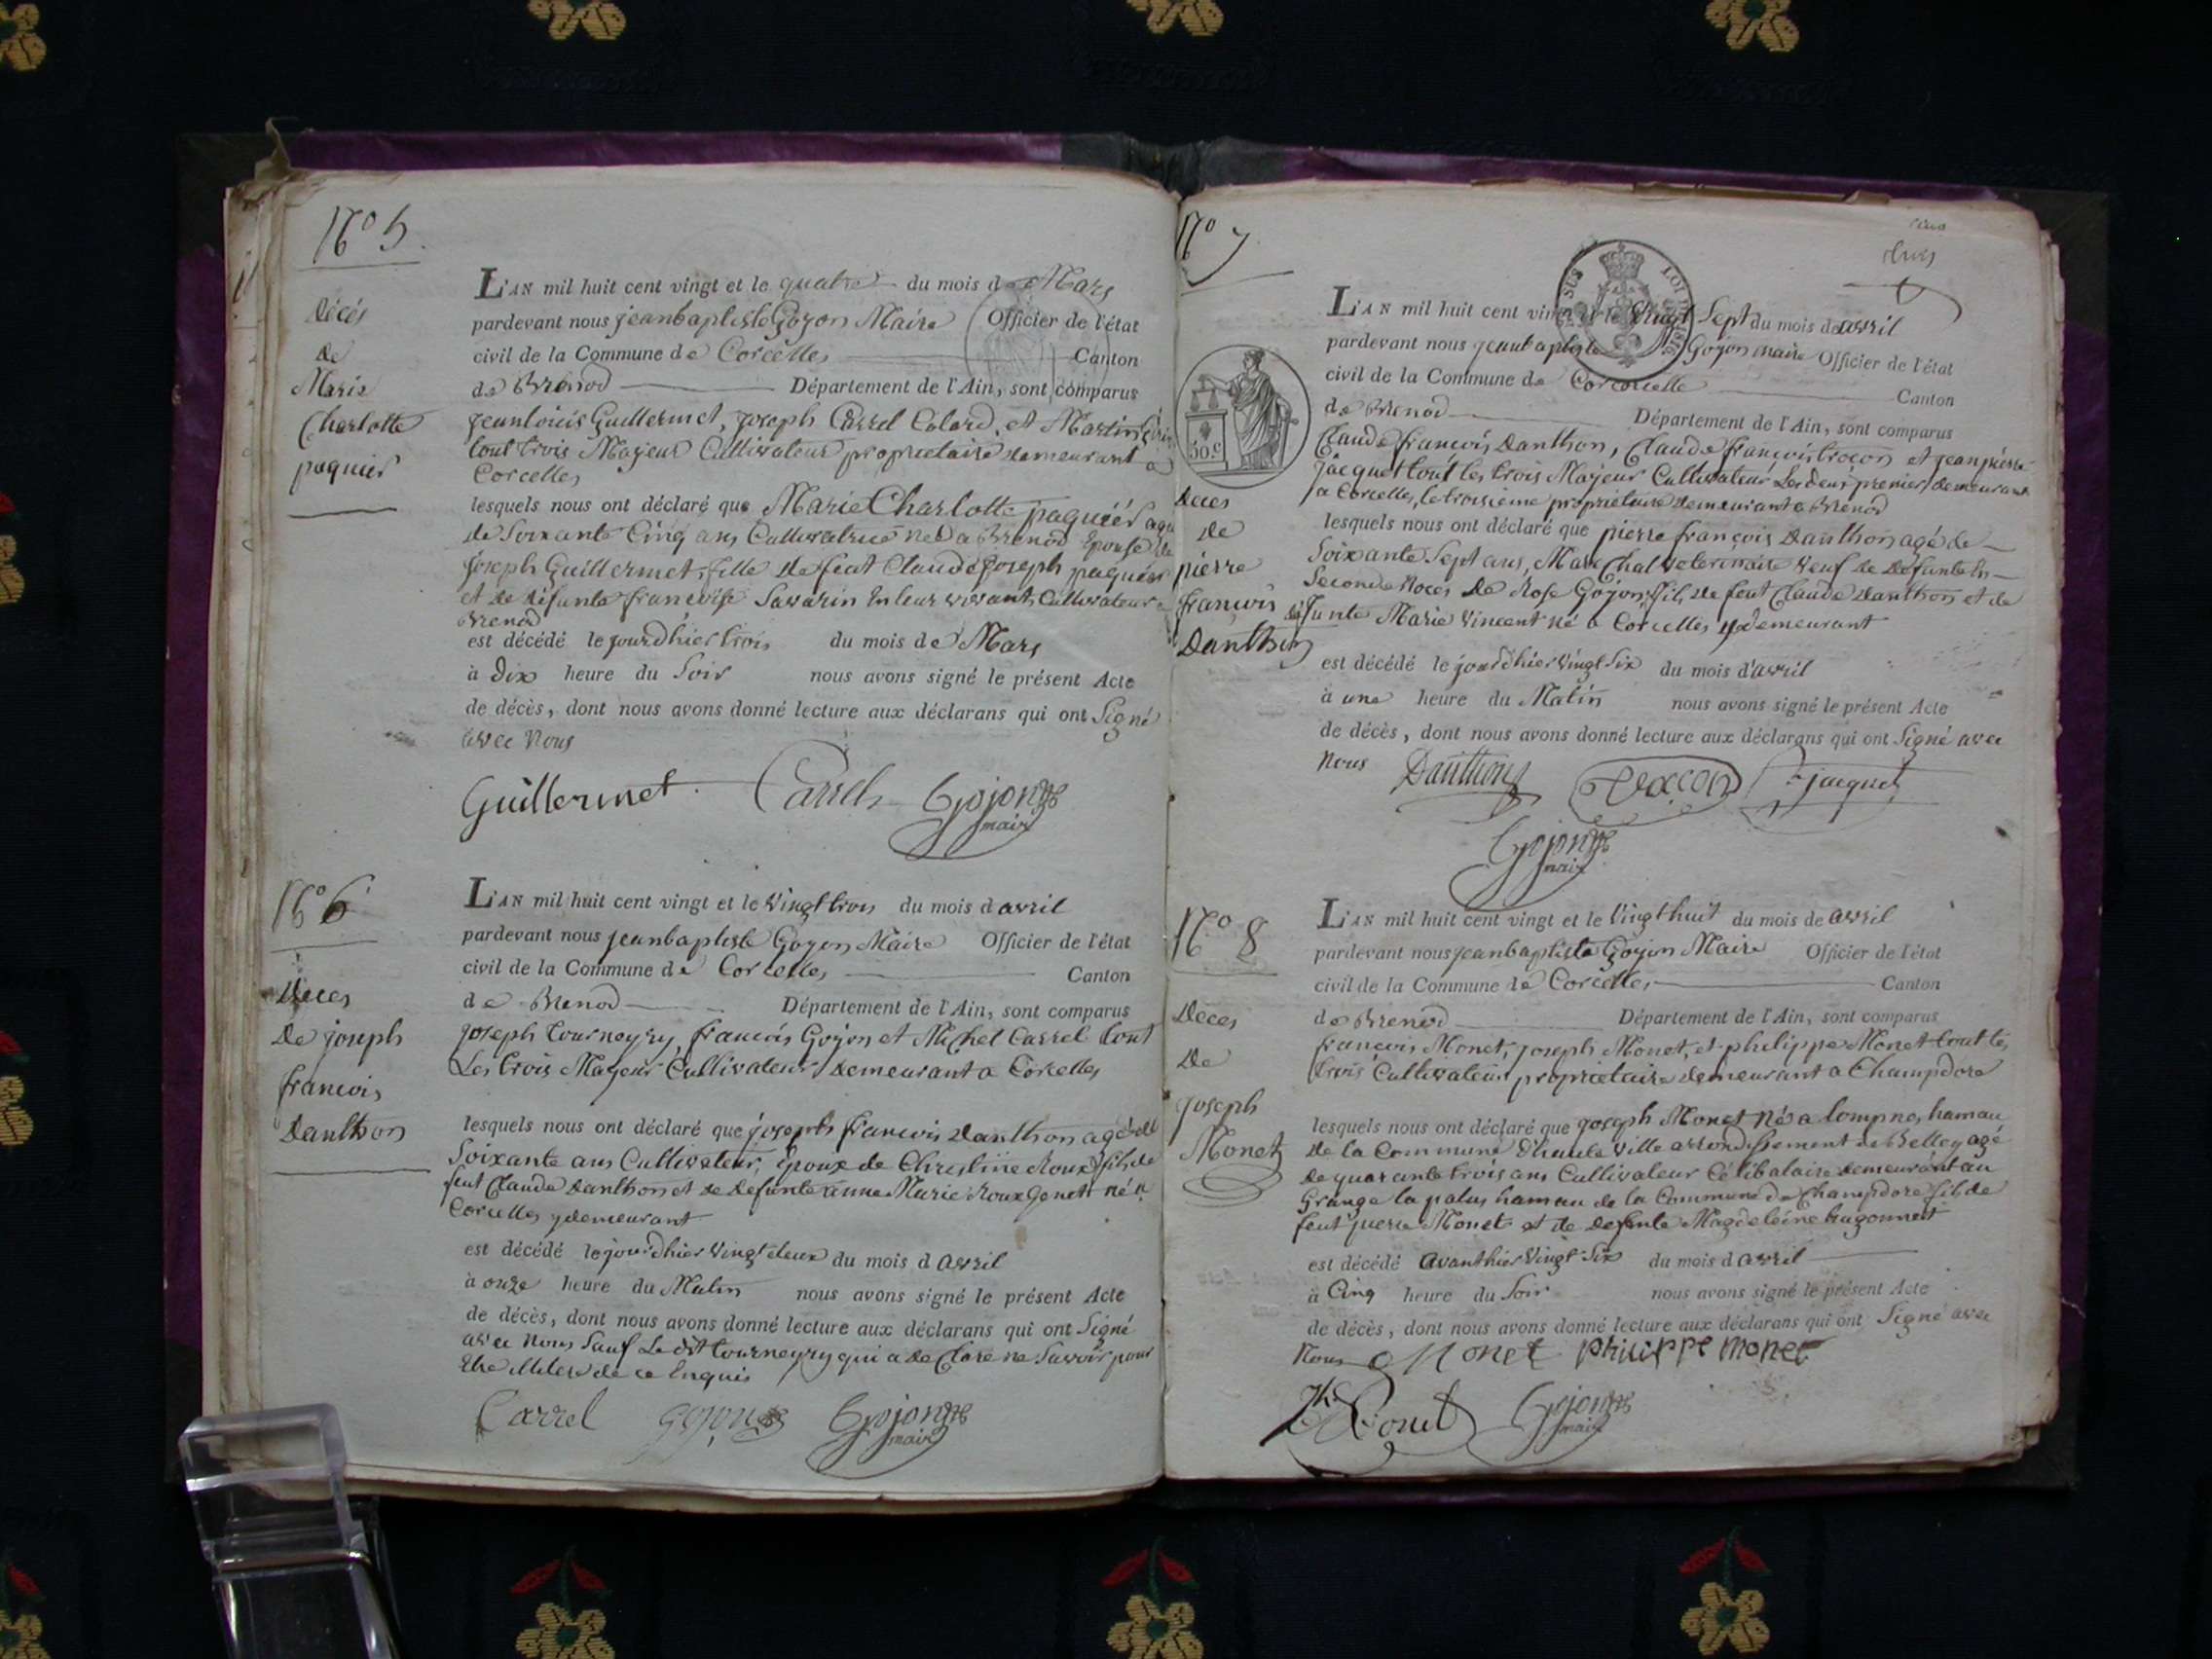 N° 5.
Décés
de
Marie
Charlotte
paquier
L'AN mil huit cent vingt et le quatre du mois de Mars
pardevant nous jeanbaptiste Gojon Maire Officier de l'état
civil de la Commune de Corcelles Canton
de Brenod Département de l'Ain, sont comparus
jeanlouis Guillermet, joseph Carrel Colard, et Martin
tout trois Majeur Cultivateur propriétaire demeurant a
Corcelles
lesquels nous ont déclaré que Marie Charlotte paquier agé
de Soixante Cinq ans Cultivatrice née a Brenod Epouse de
joseph Guillermet, fille de feut Claude joseph paquier
et de défunte francoise Savarin En leur vivant Cultivateur a
Brenod
est décédé le jourdhier trois du mois de Mars
à Dix heure du Soir nous avons signé le présent Acte
de décès, dont nous avons donné lecture aux déclarans qui ont Signé
avec Nous
Guillermet Carrel Gojon
maire
N° 6
Deces
De joseph
francois
Danthon
L'AN mil huit cent vingt et le vingt trois du mois d avril
pardevant nous jeanbaptiste Gojon Maire Officier de l'état
civil de la Commune de Corcelles Canton
de Brenod Département de l'Ain, sont comparus
joseph tourneyry, francois Gojon et Michel Carrel tout
Les trois Majeur Cultivateur demeurant a Corcelles
lesquels nous ont déclaré que joseph francois Danthon agé de
Soixante ans Cultivateur, Epoux de Christine Roux fils de
feut Claude Danthon et de defunte anne Marie Roux Genet né a
Corcelles y demeurant
est décédé le jourdhier vingt deux du mois d avril
à onze heure du Matin nous avons signé le présent Acte
de décès, dont nous avons donné lecture aux déclarans qui ont Signé
avec Nous Sauf Le dit tourneyry qui a declare ne Savoir pour
de ce Enquis
Carrel Gojon Gojon
maire
N° 7
50 C
deces
de
pierre
francois
Danthon
L'AN mil huit cent vingt et le vingt Sept du mois de avril
pardevant nous jeanbaptiste Gojon maire Officier de l'état
civil de la Commune de Corcorcelle Canton
de Brenod Département de l'Ain, sont comparus
Claude francois Danthon, Claude francois trocon et jean pierre
jacquet tout les trois Majeur Cultivateur Les deux premier demeurant
a Corcelles, le troisieme propriétaire demeurant a Brenod
lesquels nous ont déclaré que pierre francois Danthon agé de
Soixante Sept ans, Marechal veterinaire veuf de defunte En
Seconde Noces de Rose Gojon, fils de feut Claude Danthon et de
defunte Marie Vincent né a Corcelles y demeurant
est décédé le jourdhier vingt Six du mois d'avril
à une heure du Matin nous avons signé le présent Acte
de décès, dont nous avons donné lecture aux déclarans qui ont Signé avec
Nous Danthon jacquet
Gojon
maire
N° 8
Deces
De
joseph
Monet
L'AN mil huit cent vingt et le vingt huit du mois de avril
pardevant nous jeanbaptiste Gojon Maire Officier de l'état
civil de la Commune de Corcelles Canton
de Brenod Département de l'Ain, sont comparus
francois Monet, joseph Monet, et philippe Monet tout les
trois Cultivateur propriétaire demeurant a Champdore
lesquels nous ont déclaré que joseph Monet né a lompnes hamau
de la Commune D'haute Ville arrondissement de Belley agé
de quarante trois ans Cultivateur Célibataire demeurant au
Grange la palus hamau de la Commune de Champdore fils de
feut pierre Monet et de defunte Magdeleine hugonnet
est décédé avanthier Vingt Six du mois d avril
à Cinq heure du Soir nous avons signé le présent Acte
de décès, dont nous avons donné lecture aux déclarans qui ont Signé avec
Nous Monet philippe monet
Monet Gojon
maire